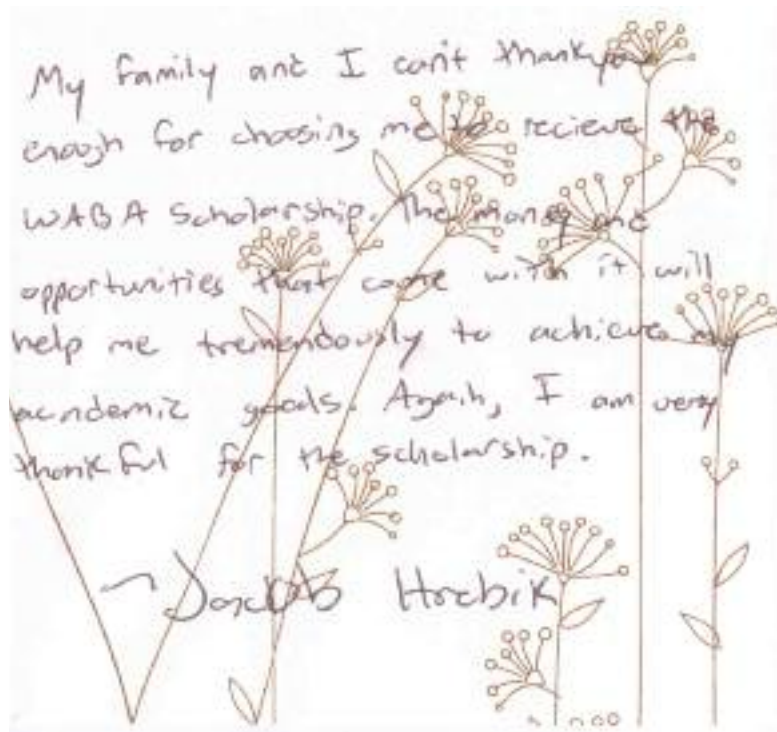 My family and I can't thank you
enough for choosing me to recieve the
WABA Scholarship. The money and
opportunities that come with it will
help me tremendously to achieve my
academic goals. Again, I am very
thankful for the scholarship.
~Jacob Hrebik